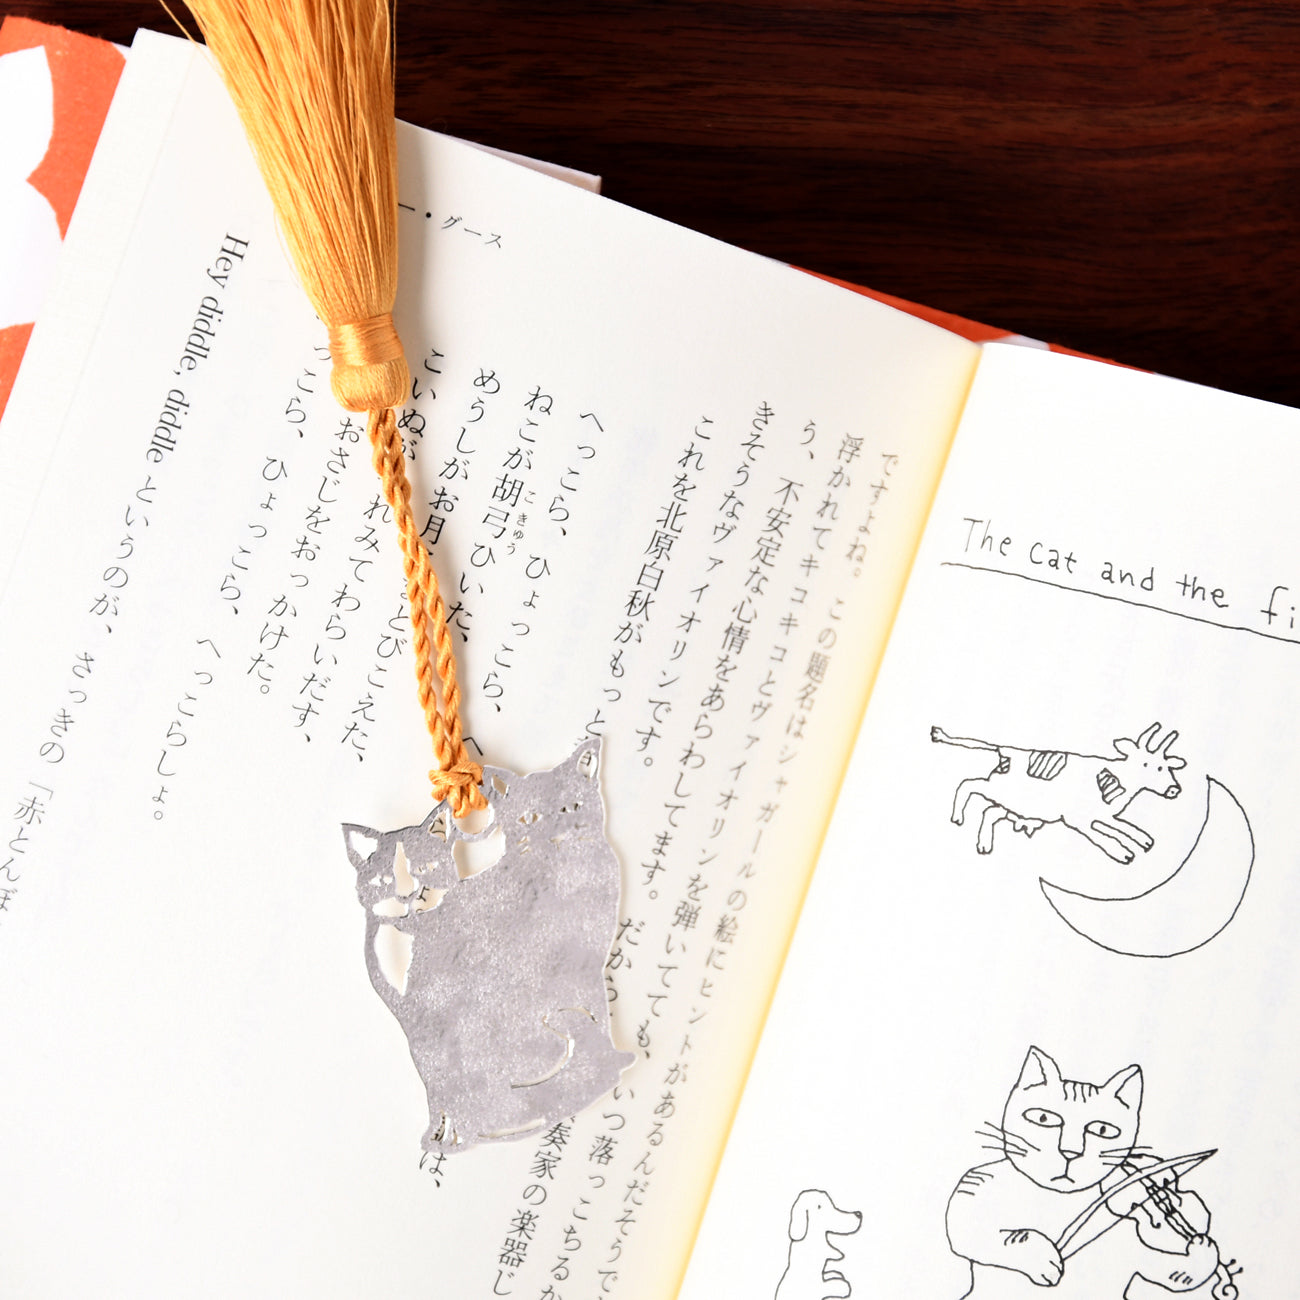 ー・グース
ですよね。この題名はシャガールの絵にヒントがあるんだそうで
浮かれてキコキコとヴァイオリンを弾いてても、いつ落っこちるか
う、不安定な心情をあらわしてます。だから、奏家の楽器じ
きそうなヴァイオリンです。
これを北原白秋がもっと は、
へっこら、ひょっこら、へ
ねこが胡弓ひいた、
こきゅう
めうしがお月 とびこえた、
こいぬが れみてわらいだす、
おさじをおっかけた。
っこら、ひょっこら、へっこらしょ。
Hey diddle, diddle というのが、さっきの「赤とんぼ
The cat and the fi